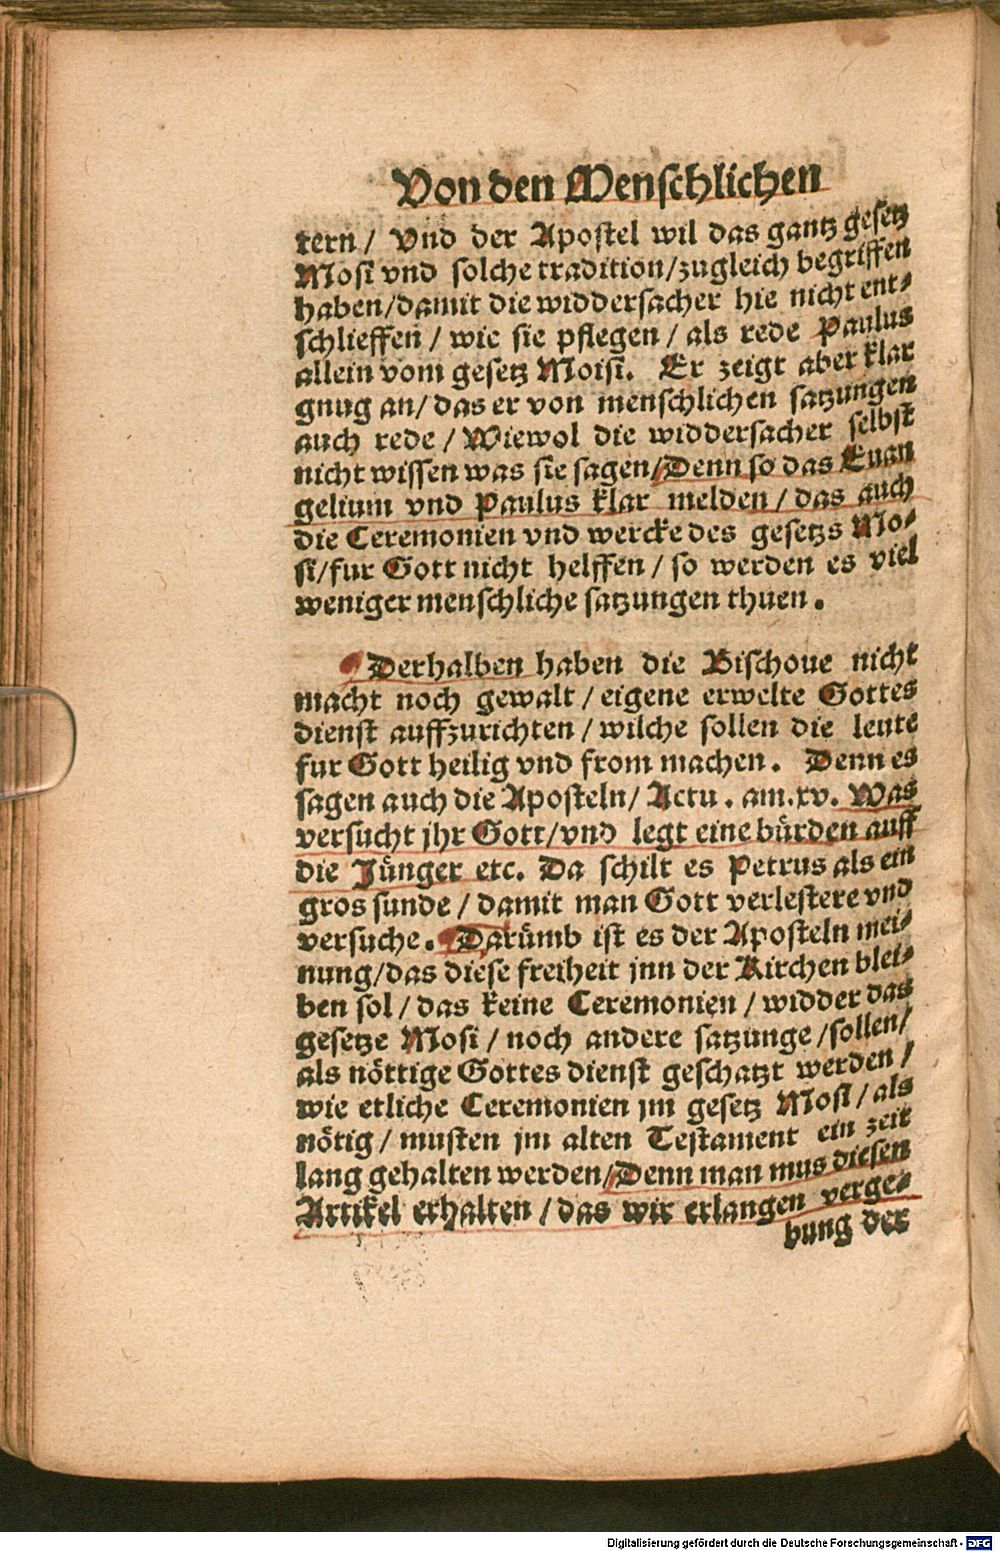 Von den Menschlichen
tern / Vnd der Apostel wil das gantz gesetz
Mosi vnd solche tradition/zugleich begriffen
haben/damit die widdersacher hie nicht ent-
schlieffen / wie sie pflegen / als rede Paulus
allein vom gesetz Moisi. Er zeigt aber klar
gnug an/ das er von menschlichen satzungen
auch rede / Wiewol die widdersacher selbst
nicht wissen was sie sagen/Denn so das Euan
gelium vnd Paulus klar melden / das auch
die Ceremonien vnd wercke des gesetzs Mo-
si/fur Gott nicht helffen / so werden es viel
weniger menschliche satzungen thuen.
Derhalben haben die Bischoue nicht
macht noch gewalt / eigene erwelte Gottes
dienst auffzurichten / wilche sollen die leute
fur Gott heilig vnd from machen. Denn es
sagen auch die Aposteln/ Actu. am.xv. Was
versucht jhr Gott/vnd legt eine bürden auff
die Jünger etc. Da schilt es Petrus als ein
gros sunde / damit man Gott verlestere vnd
versuche. Darümb ist es der Aposteln mei-
nung/das diese freiheit jnn der Kirchen blei-
ben sol / das keine Ceremonien / widder das
gesetze Mosi / noch andere satzunge /sollen/
als nöttige Gottes dienst geschatzt werden /
wie etliche Ceremonien jm gesetz Mosi / als
nötig / musten jm alten Testament ein zeit
lang gehalten werden/Denn man mus diesen
Artikel erhalten / das wir erlangen verge-
bung der
Digitalisierung gefördert durch die Deutsche Forschungsgemeinschaft - DFG